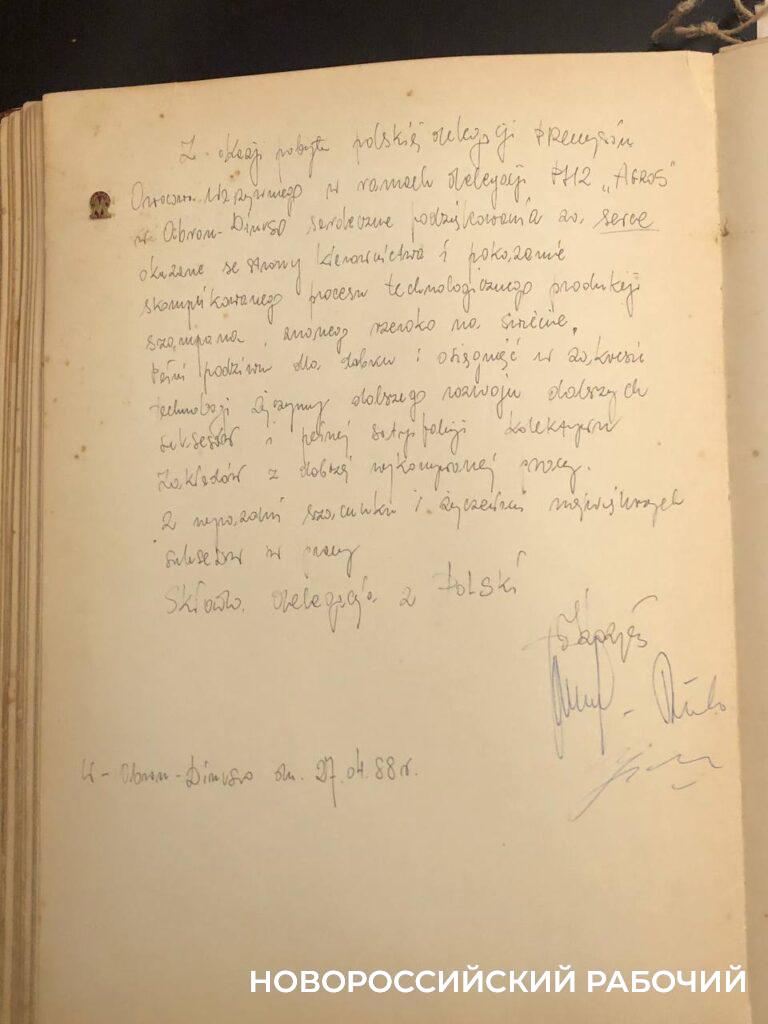 Z okazji pobytu polskiej delegacji Przemysłu
Owocowo Warzywnego w ramach delegacji PHZ „Agros"
w Abrau-Diurso serdeczne podziękowania za serce
okazane ze strony kierownictwa i pokazanie
skomplikowanego procesu technologicznego produkcji
szampana, znanego szeroko na świecie.
Pełni podziwu dla dobru i osiągnięć w zakresie
technologi życzymy dalszego rozwoju dalszych
sukcesów i pełnej satysfakcji kolektywu
Zakładów z dobrej wykonywanej pracy.
Z szacunku i życzeniami największych
sukcesów w pracy
delegacja z Polski
dn. 27.04.88r.
НОВОРОССИЙСКИЙ РАБОЧИЙ